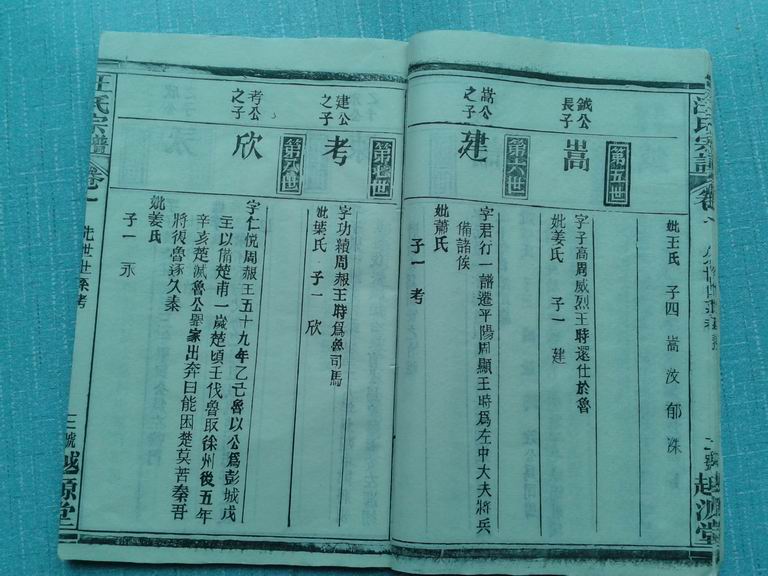 汪氏宗譜
越源堂
妣王氏 子四 嵩 汶 郁 洙
第五世
鉞公
長子
嵩
字子高周威烈王時還仕於魯
妣姜氏 子一 建
第十六世
嵩公
之子
建
字君行一譜遷平陽周顯王時爲左中大夫將兵
備諸侯
妣蕭氏
子一 考
建公
之子
考
字功績周赧王時爲魯司馬
妣葉氏 子一 欣
考公
之子
欣
字仁悦周赧王五十九年乙巳魯以公爲彭城戍
主以備楚甫一歲楚頃王伐魯取徐州後五年
辛亥楚滅魯公舉家出奔曰能因楚莫苦秦吾
將復魯逐久秦
妣姜氏
子一 永
汪氏宗譜
卷一
先世世系考
三號
越源堂